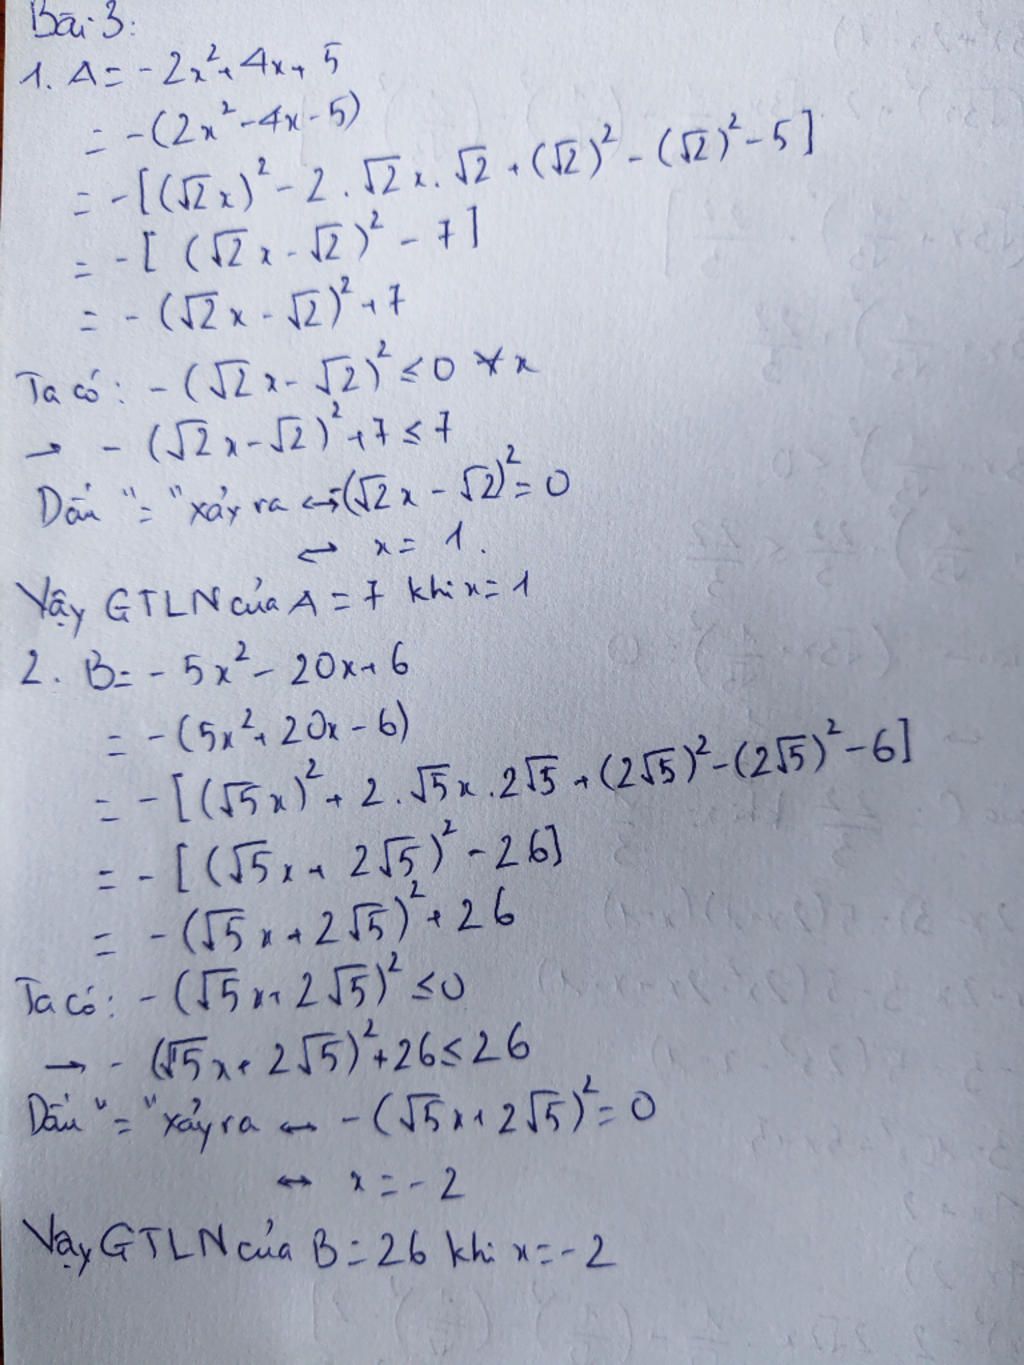 Bài 3:
1. A = -2x² + 4x + 5
= -(2x² - 4x - 5)
= -[(√2x)² - 2.√2x.√2 + (√2)² - (√2)² - 5]
= -[(√2x - √2)² - 7]
= -(√2x - √2)² + 7
Ta có: -(√2x - √2)² ≤ 0 ∀x
→ -(√2x - √2)² + 7 ≤ 7
Dấu "=" xảy ra ↔ -(√2x - √2)² = 0
↔ x = 1.
Vậy GTLN của A = 7 khi x = 1
2. B = -5x² - 20x + 6
= -(5x² + 20x - 6)
= -[(√5x)² + 2.√5x.2√5 + (2√5)² - (2√5)² - 6]
= -[(√5x + 2√5)² - 26]
= -(√5x + 2√5)² + 26
Ta có: -(√5x + 2√5)² ≤ 0
→ -(√5x + 2√5)² + 26 ≤ 26
Dấu "=" xảy ra ↔ -(√5x + 2√5)² = 0
↔ x = -2
Vậy GTLN của B = 26 khi x = -2